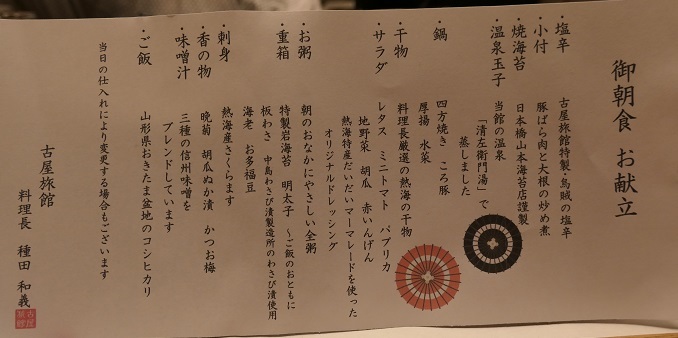 御朝食 お献立
・塩辛 古屋旅館特製・烏賊の塩辛
・小付 豚ばら肉と大根の炒め煮
・焼海苔 日本橋山本海苔店謹製
・温泉玉子 当館の温泉
「清左衛門湯」で
蒸しました
・鍋 四方焼き ころ豚
厚揚 水菜
・干物 料理長厳選の熱海の干物
・サラダ レタス ミニトマト パプリカ
地野菜 胡瓜 赤いんげん
熱海特産だいだいマーマレードを使った
オリジナルドレッシング
・お粥 朝のおなかにやさしい全粥
・重箱 特製岩海苔 明太子 〜ご飯のおともに
板わさ 中島わさび漬製造所のわさび漬使用
海老 お多福豆
・刺身 熱海産さくらます
・香の物 晩菊 胡瓜ぬか漬 かつお梅
・味噌汁 三種の信州味噌を
ブレンドしています
・ご飯 山形県おきたま盆地のコシヒカリ
当日の仕入れにより変更する場合もございます
古屋旅館
料理長 種田 和義